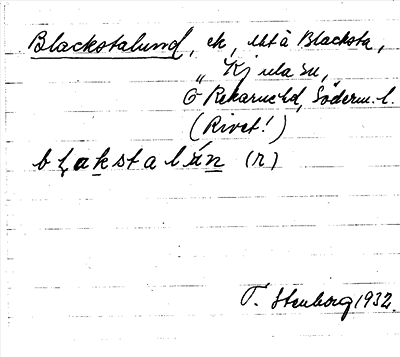 Blackstalund, ek, utt å Blacksta,
" Kjula sn,
Ö Rekarne hd, Söderm. l.
(Rivet!)
blakstalún (n)
T. Stenborg 1932.